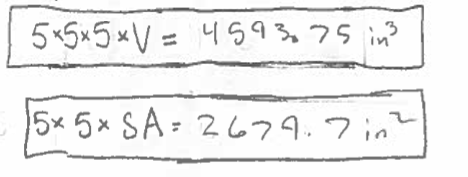 5×5×5×V = 4593.75 in³
5×5×SA = 2679.7 in²